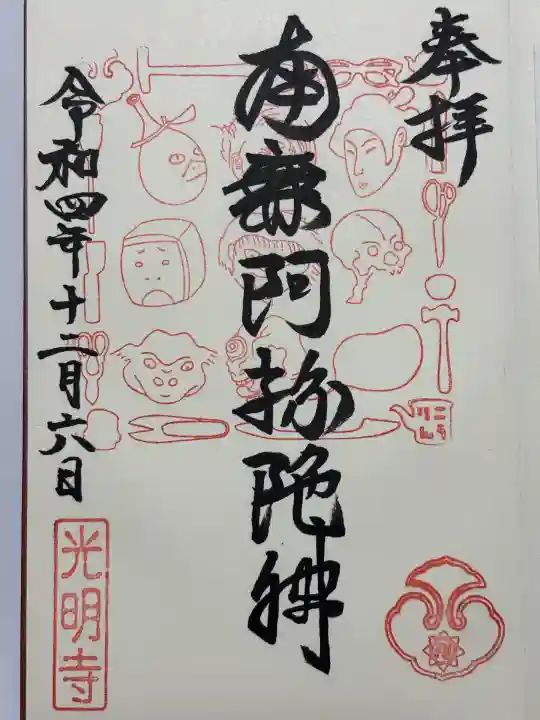 奉拝
南無阿弥陀佛
令和四年十二月六日
光明寺
こうりん